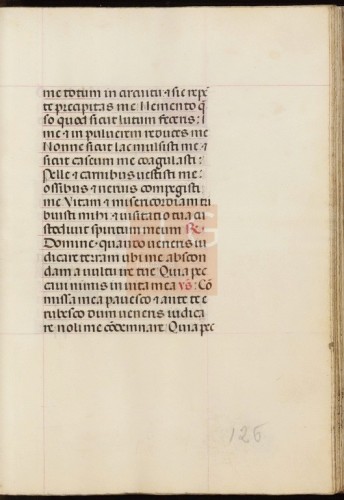 me totum in circuitu ⁊ sic repẽ
te precipitas me Memento q̃
so quod sicut lutum feceris:
me ⁊ in pulverem reduces me
Nonne sicut lac mulsisti me ⁊
sicut caseum me coagulasti:
Pelle ⁊ carnibus vestisti me:
ossibus ⁊ nervis compegisti
me Vitam ⁊ misericordiam tri
buisti mihi ⁊ visitatio tua cu
stodivit spiritum meum R:
Domine ⁊ quando veneris iu
dicare terram ubi me abscon
dam a vultu ire tue Quia pec
cavi nimis in vita mea vs: Cõ
missa mea pavesco ⁊ ante te e
rubesco dum veneris iudica
re noli me cõdemnare. Quia pec
126